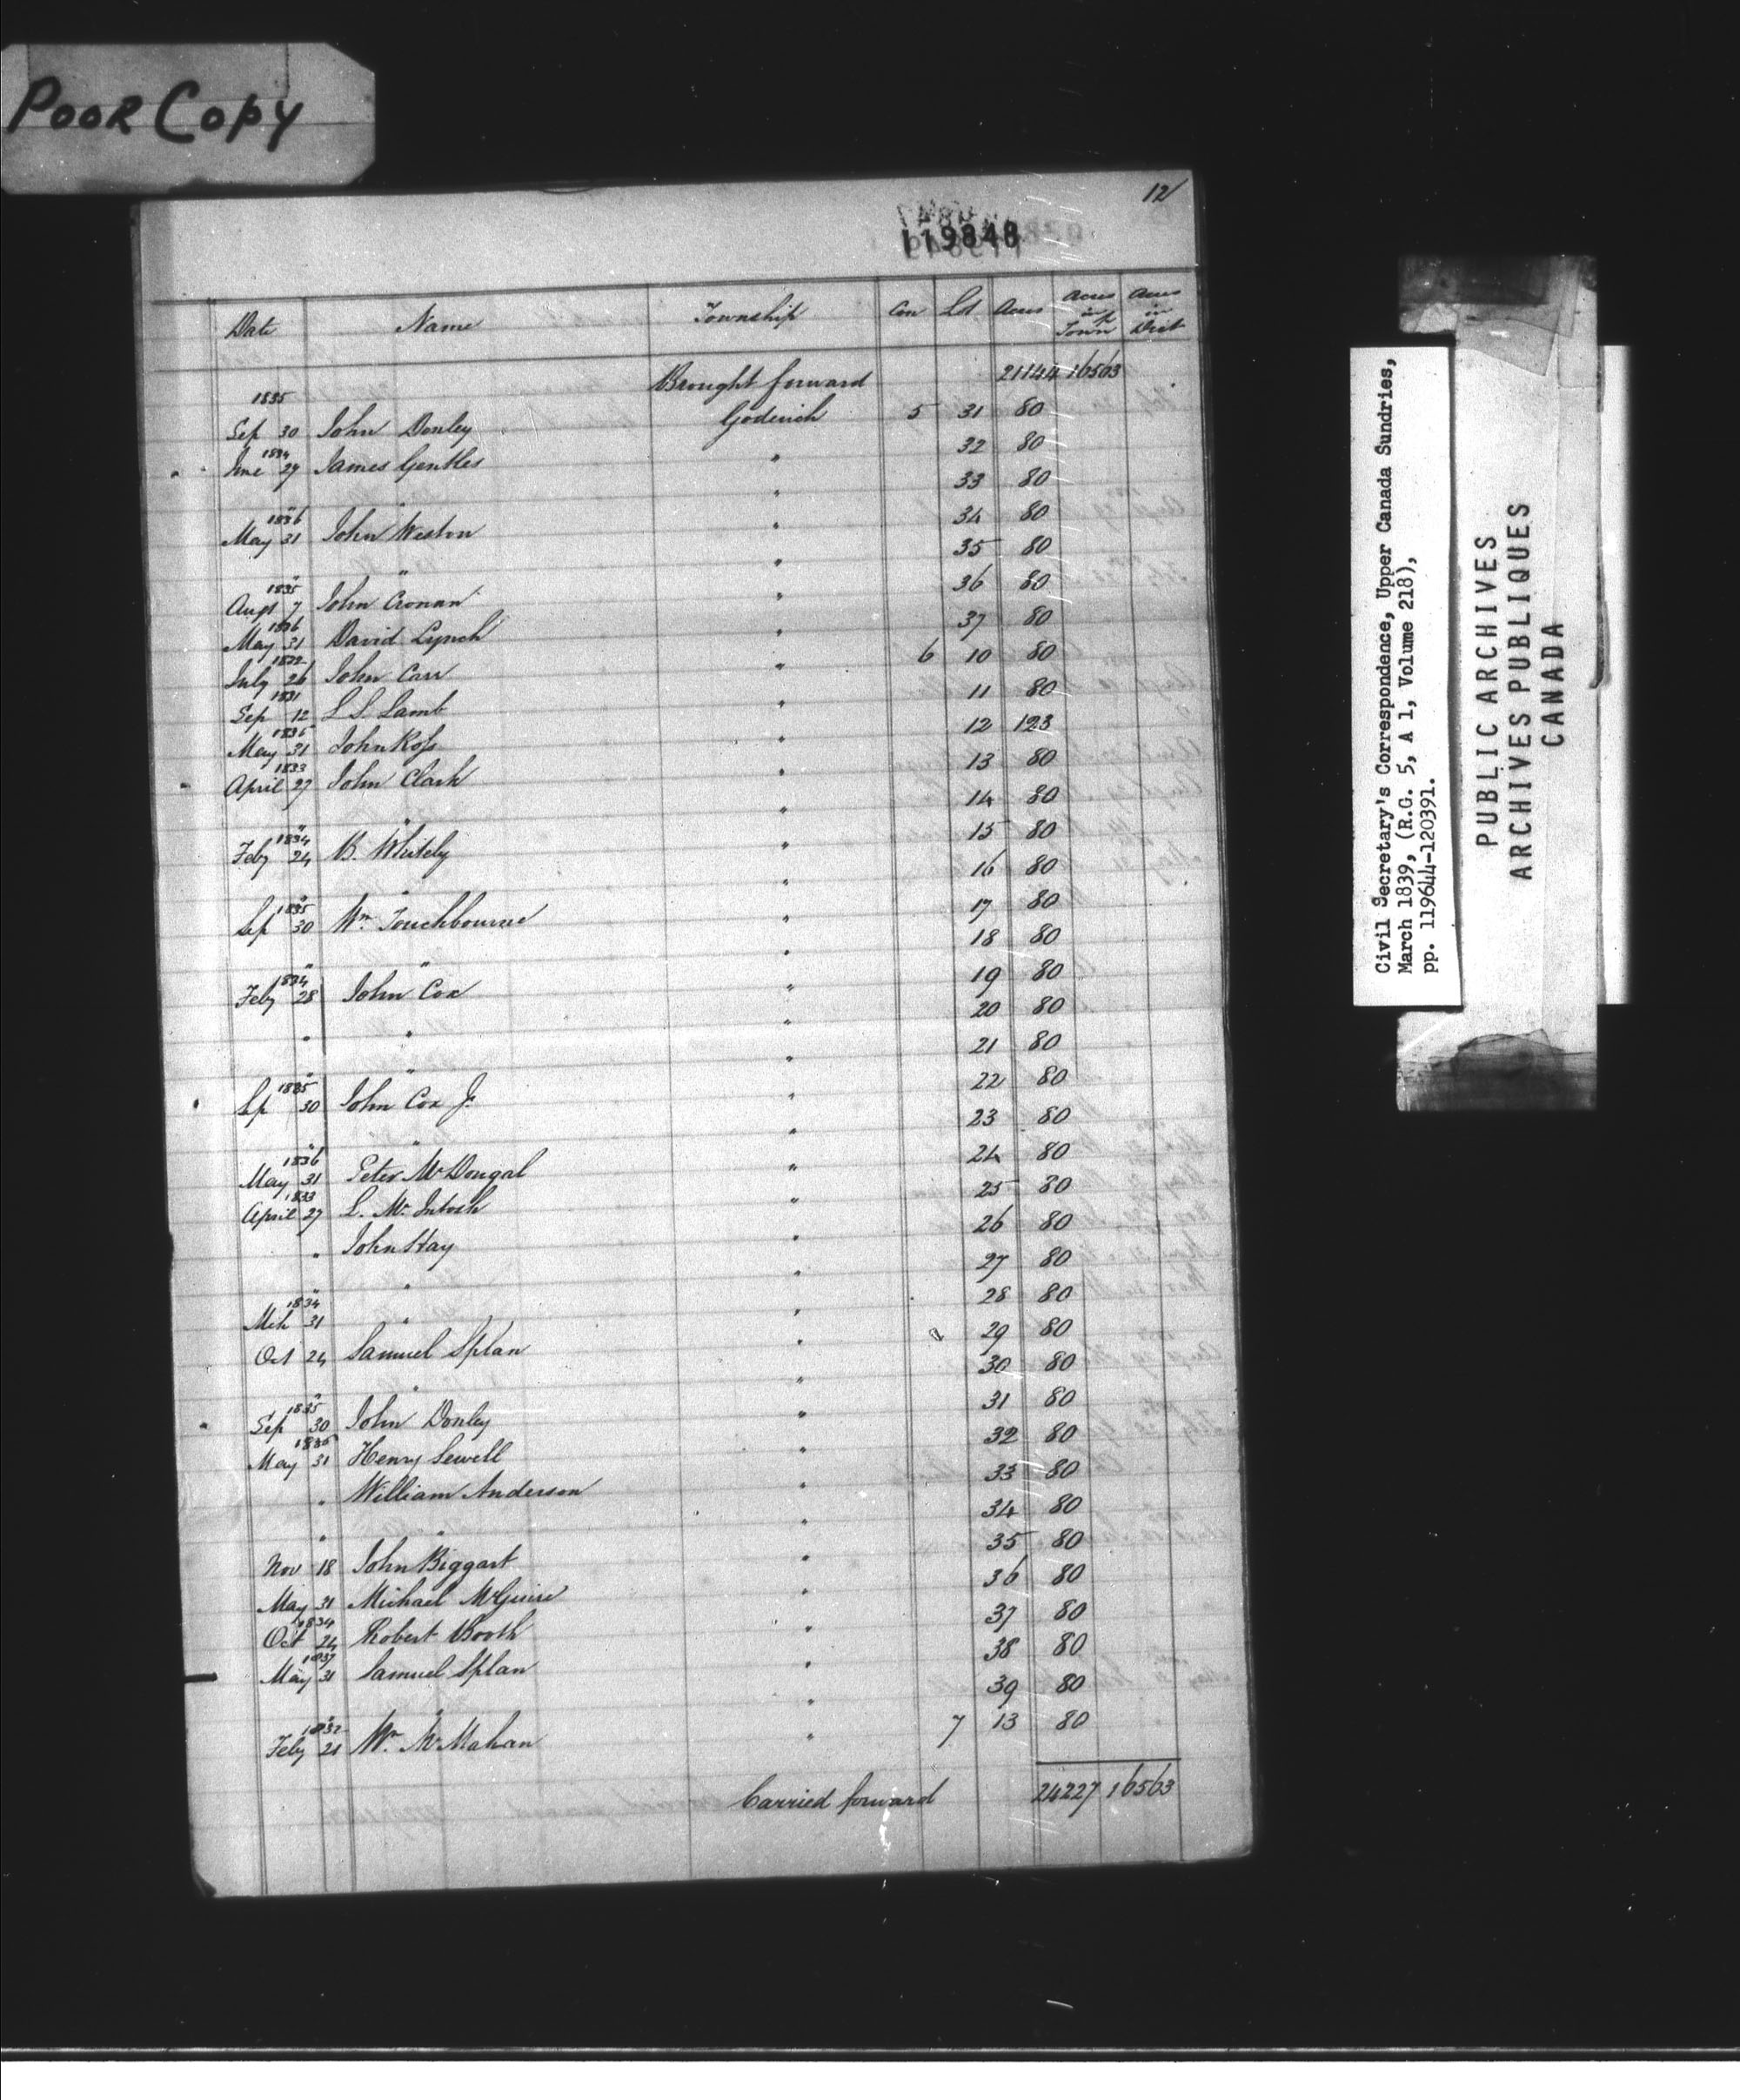 Poor Copy
12
119848
Date Name Township Con Lot Acres Acres in Townp Acres in Dist
Brought forward 21144 16563
1835 Sep 30 John Donley Goderich 5 31 80
1834 June 27 James Gentles " 32 80
" " " 33 80
1836 May 31 John Weston " 34 80
" " " 35 80
1835 Augt 7 John Cronan " 36 80
1836 May 31 David Lynch " 37 80
1832 July 26 John Carr " 6 10 80
1831 Sep 12 L S. Lamb " 11 80
1835 May 31 John Ross " 12 123
1833 April 27 John Clark " 13 80
" " " 14 80
1834 Feby 24 B. Whitely " 15 80
" " " 16 80
1835 Sep 30 Wm. Touchbourne " 17 80
" " " 18 80
1834 Feby 28 John Cox " 19 80
" " " 20 80
" " " 21 80
1835 Sep 30 John Cox Jr " 22 80
" " " 23 80
1836 May 31 Peter McDougal " 24 80
1833 April 27 L. McIntosh " 25 80
" John Hay " 26 80
" " " 27 80
1834 Mch 31 " " 28 80
Oct 24 Samuel Splan " 29 80
" " " 30 80
1835 Sep 30 John Donley " 31 80
1836 May 31 Henry Sewell " 32 80
" William Anderson " 33 80
" " " 34 80
Nov 18 John Biggart " 35 80
May 31 Michael McGuire " 36 80
1834 Oct 24 Robert Booth " 37 80
1837 May 31 Samuel Splan " 38 80
" " " 39 80
1832 Feby 21 Wm. McMahan " 7 13 80
Carried forward 24227 16563
Civil Secretary's Correspondence, Upper Canada Sundries,
March 1839, (R.G. 5, A 1, Volume 218),
pp. 119644-120391.
PUBLIC ARCHIVES
ARCHIVES PUBLIQUES
CANADA